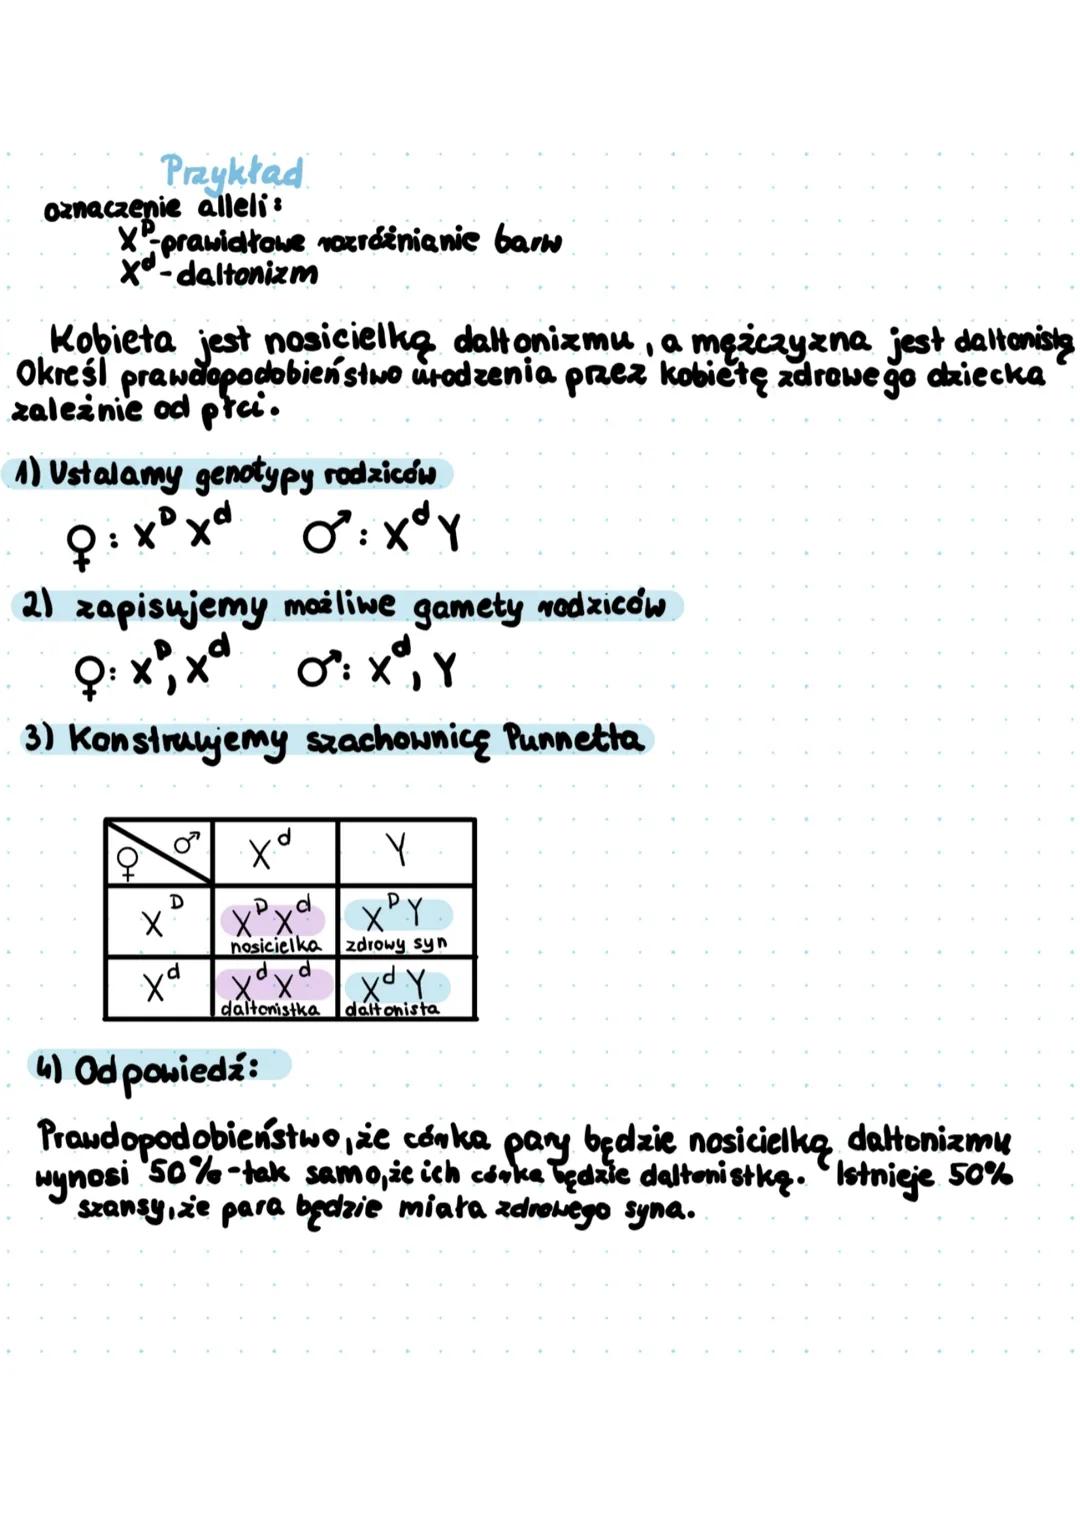 Przykład
oznaczenie alleli:
X^D-prawidłowe rozróżnianie barw
X^d-daltonizm
Kobieta jest nosicielką daltonizmu, a mężczyzna jest daltonistą
Określ prawdopodobieństwo urodzenia przez kobietę zdrowego dziecka
zależnie od płci.
1) Ustalamy genotypy rodziców
♀: X^D X^d ♂: X^d Y
2) zapisujemy możliwe gamety rodziców
♀: X^D, X^d ♂: X^d, Y
3) Konstruujemy szachownicę Punnetta
♀ ♂ X^d Y
X^D X^D X^d X^D Y
nosicielka zdrowy syn
X^d X^d X^d X^d Y
daltonistka daltonista
4) Odpowiedź:
Prawdopodobieństwo, że córka pary będzie nosicielką daltonizmu
wynosi 50% - tak samo, że ich córka będzie daltonistką. Istnieje 50%
szansy, że para będzie miała zdrowego syna.